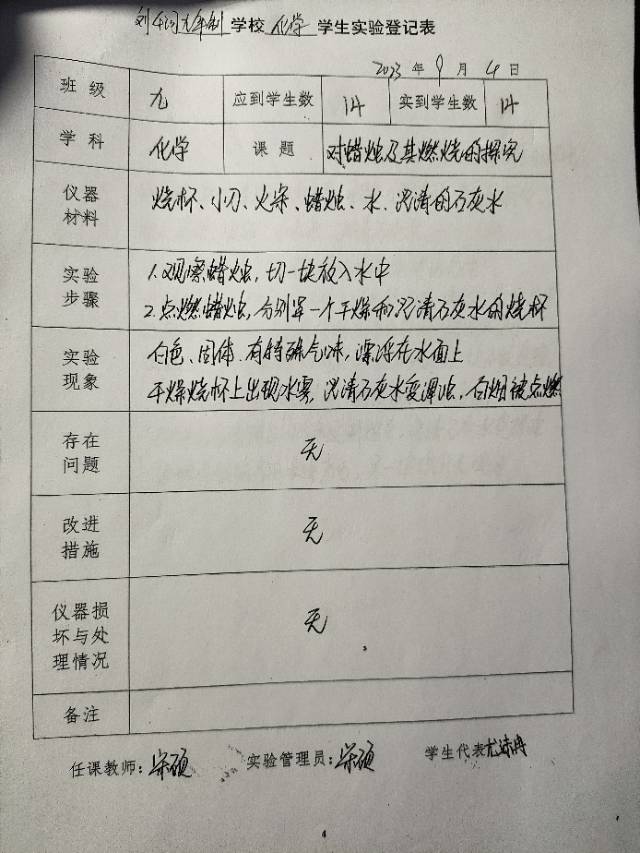 刘 九年制 学校 化学 学生实验登记表
2023 年 9 月 4 日
班 级 九 应到学生数 14 实到学生数 14
学 科 化学 课 题 对蜡烛及其燃烧的探究
仪器
材料
烧杯、小刀、火柴、蜡烛、水、澄清的石灰水
实验
步骤
1.观察蜡烛,切一块放入水中
2.点燃蜡烛,分别罩一个干燥和澄清石灰水的烧杯
实验
现象
白色、固体、有特殊气味,漂浮在水面上
干燥烧杯上出现水雾,澄清石灰水变浑浊,白烟被点燃
存在
问题
无
改进
措施
无
仪器损
坏与处
理情况
无
备注
任课教师:宋硕 实验管理员:宋硕 学生代表